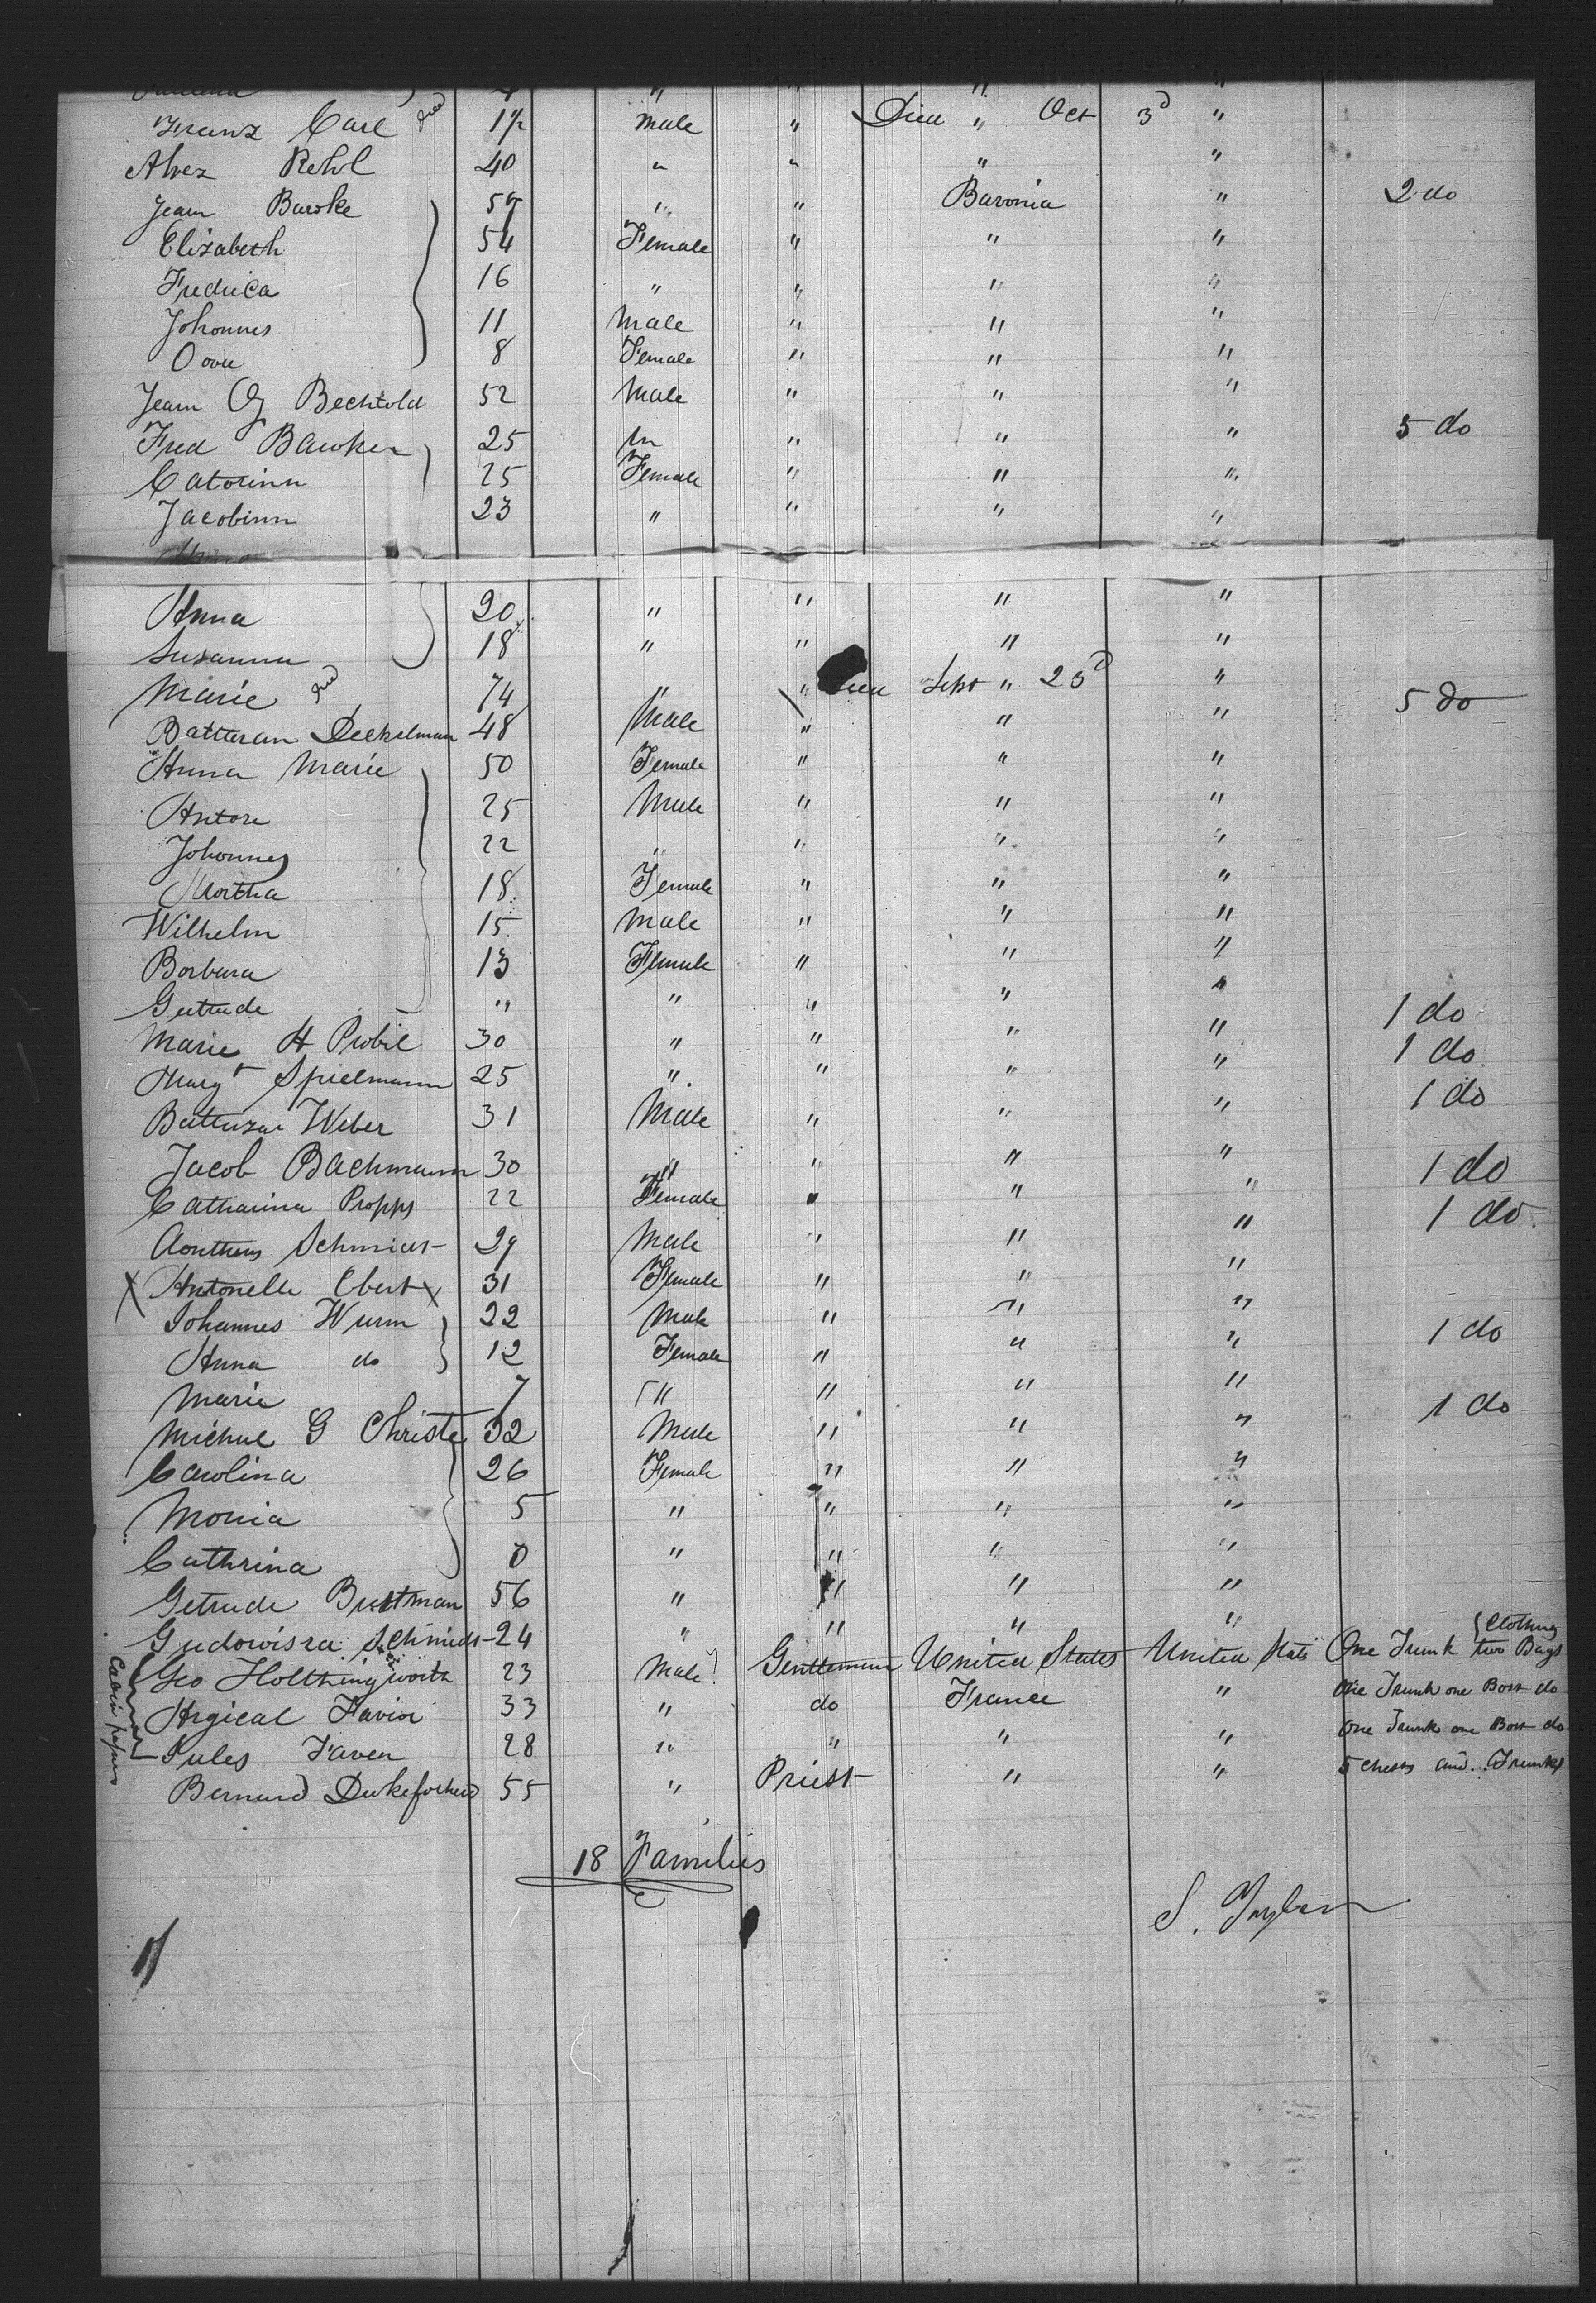 Franz Carl died 1½ male " Died " Oct 3d "
Alvez Rehl 40 " " " "
Jean Bauske 59 " " Bavonia " 2 do
Elizabeth 54 Female " " "
Fredrica 16 " " " "
Johonnes 11 Male " " "
8 Female " " "
Jean G Bechtold 52 Male " " "
Fred Bawker 25 m " " " 5 do
Catorinn 25 Female " " "
Jacobinn 23 " " " "
Anna 20 " " " "
Susanna 18 " " " "
Marie died 74 " " Sept " 25d " 5 do
Batteran Deckelman 48 Male " " "
Anna Marie 50 Female " " "
Anton 25 Male " " "
Johonnes 22 " " " "
Mortha 18 Female " " "
Wilhelm 15 Male " " "
Borbara 13 Female " " "
Gutrude " " " " "
Marie A Probil 30 " " " " 1 do
Margt Spielmann 25 " " " " 1 do
Battuzar Weber 31 Male " " " 1 do
Jacob Bachmann 30 " " " " 1 do
Catharina Propps 22 Female " " " 1 do
Schmidt 29 Male " " "
X Antonelle Ebert X 31 Female " " "
Johannes Wurm 22 Male " " " 1 do
Anna do 12 Female " " "
Marie 7 " " " "
Michael G Christe 32 Male " " " 1 do
Carolina 26 Female " " "
Monia 5 " " " "
Cathrina 0 " " " "
Getrude Brestman 56 " " " "
Schmidt 24 " " " " {Clothing
Geo Holthingworth 23 Male Gentlemen United States United State One Trunk two Bags
Favior 33 " do France " One Trunk one Box do
Jules Faven 28 " " " " One Trunk one Box do
Bernard 55 " Priest " " 5 Chests and Trunks
Cabin
18 Families
S.